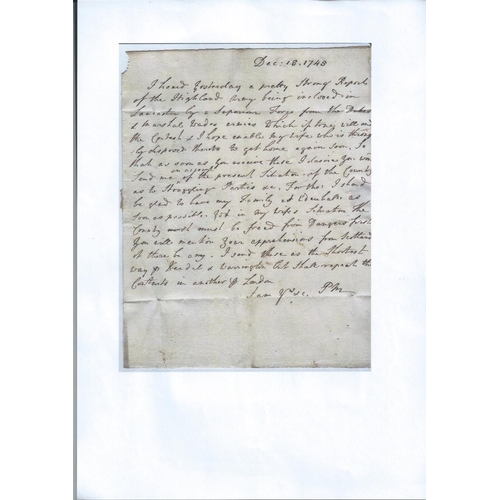 Dec: 18. 1745
I heard Yesterday a pretty Strong Report
of the Highland Army being inclosed in
Lancaster by a Superiour Force from the Dukes
& Marshal Wades armies which I pray will end
the Contest & I hope enable my Wife who is
disposed thereto to get home again soon. So
that as soon as You receive these I desire You will
Send me an account of the present Situation of the Country
as to Straggling Parties &c. for tho' I should
be glad to have my Family at Edenhall as
soon as possible. Yet in my Wife's Situation the
County must be freed from Dangers first
You will mention Your apprehensions from Scotland
if there be any. I send these as the Shortest
way P Kendal & Warrington but shall repeat the
Contents in another P London
I am Yrs &c. PM